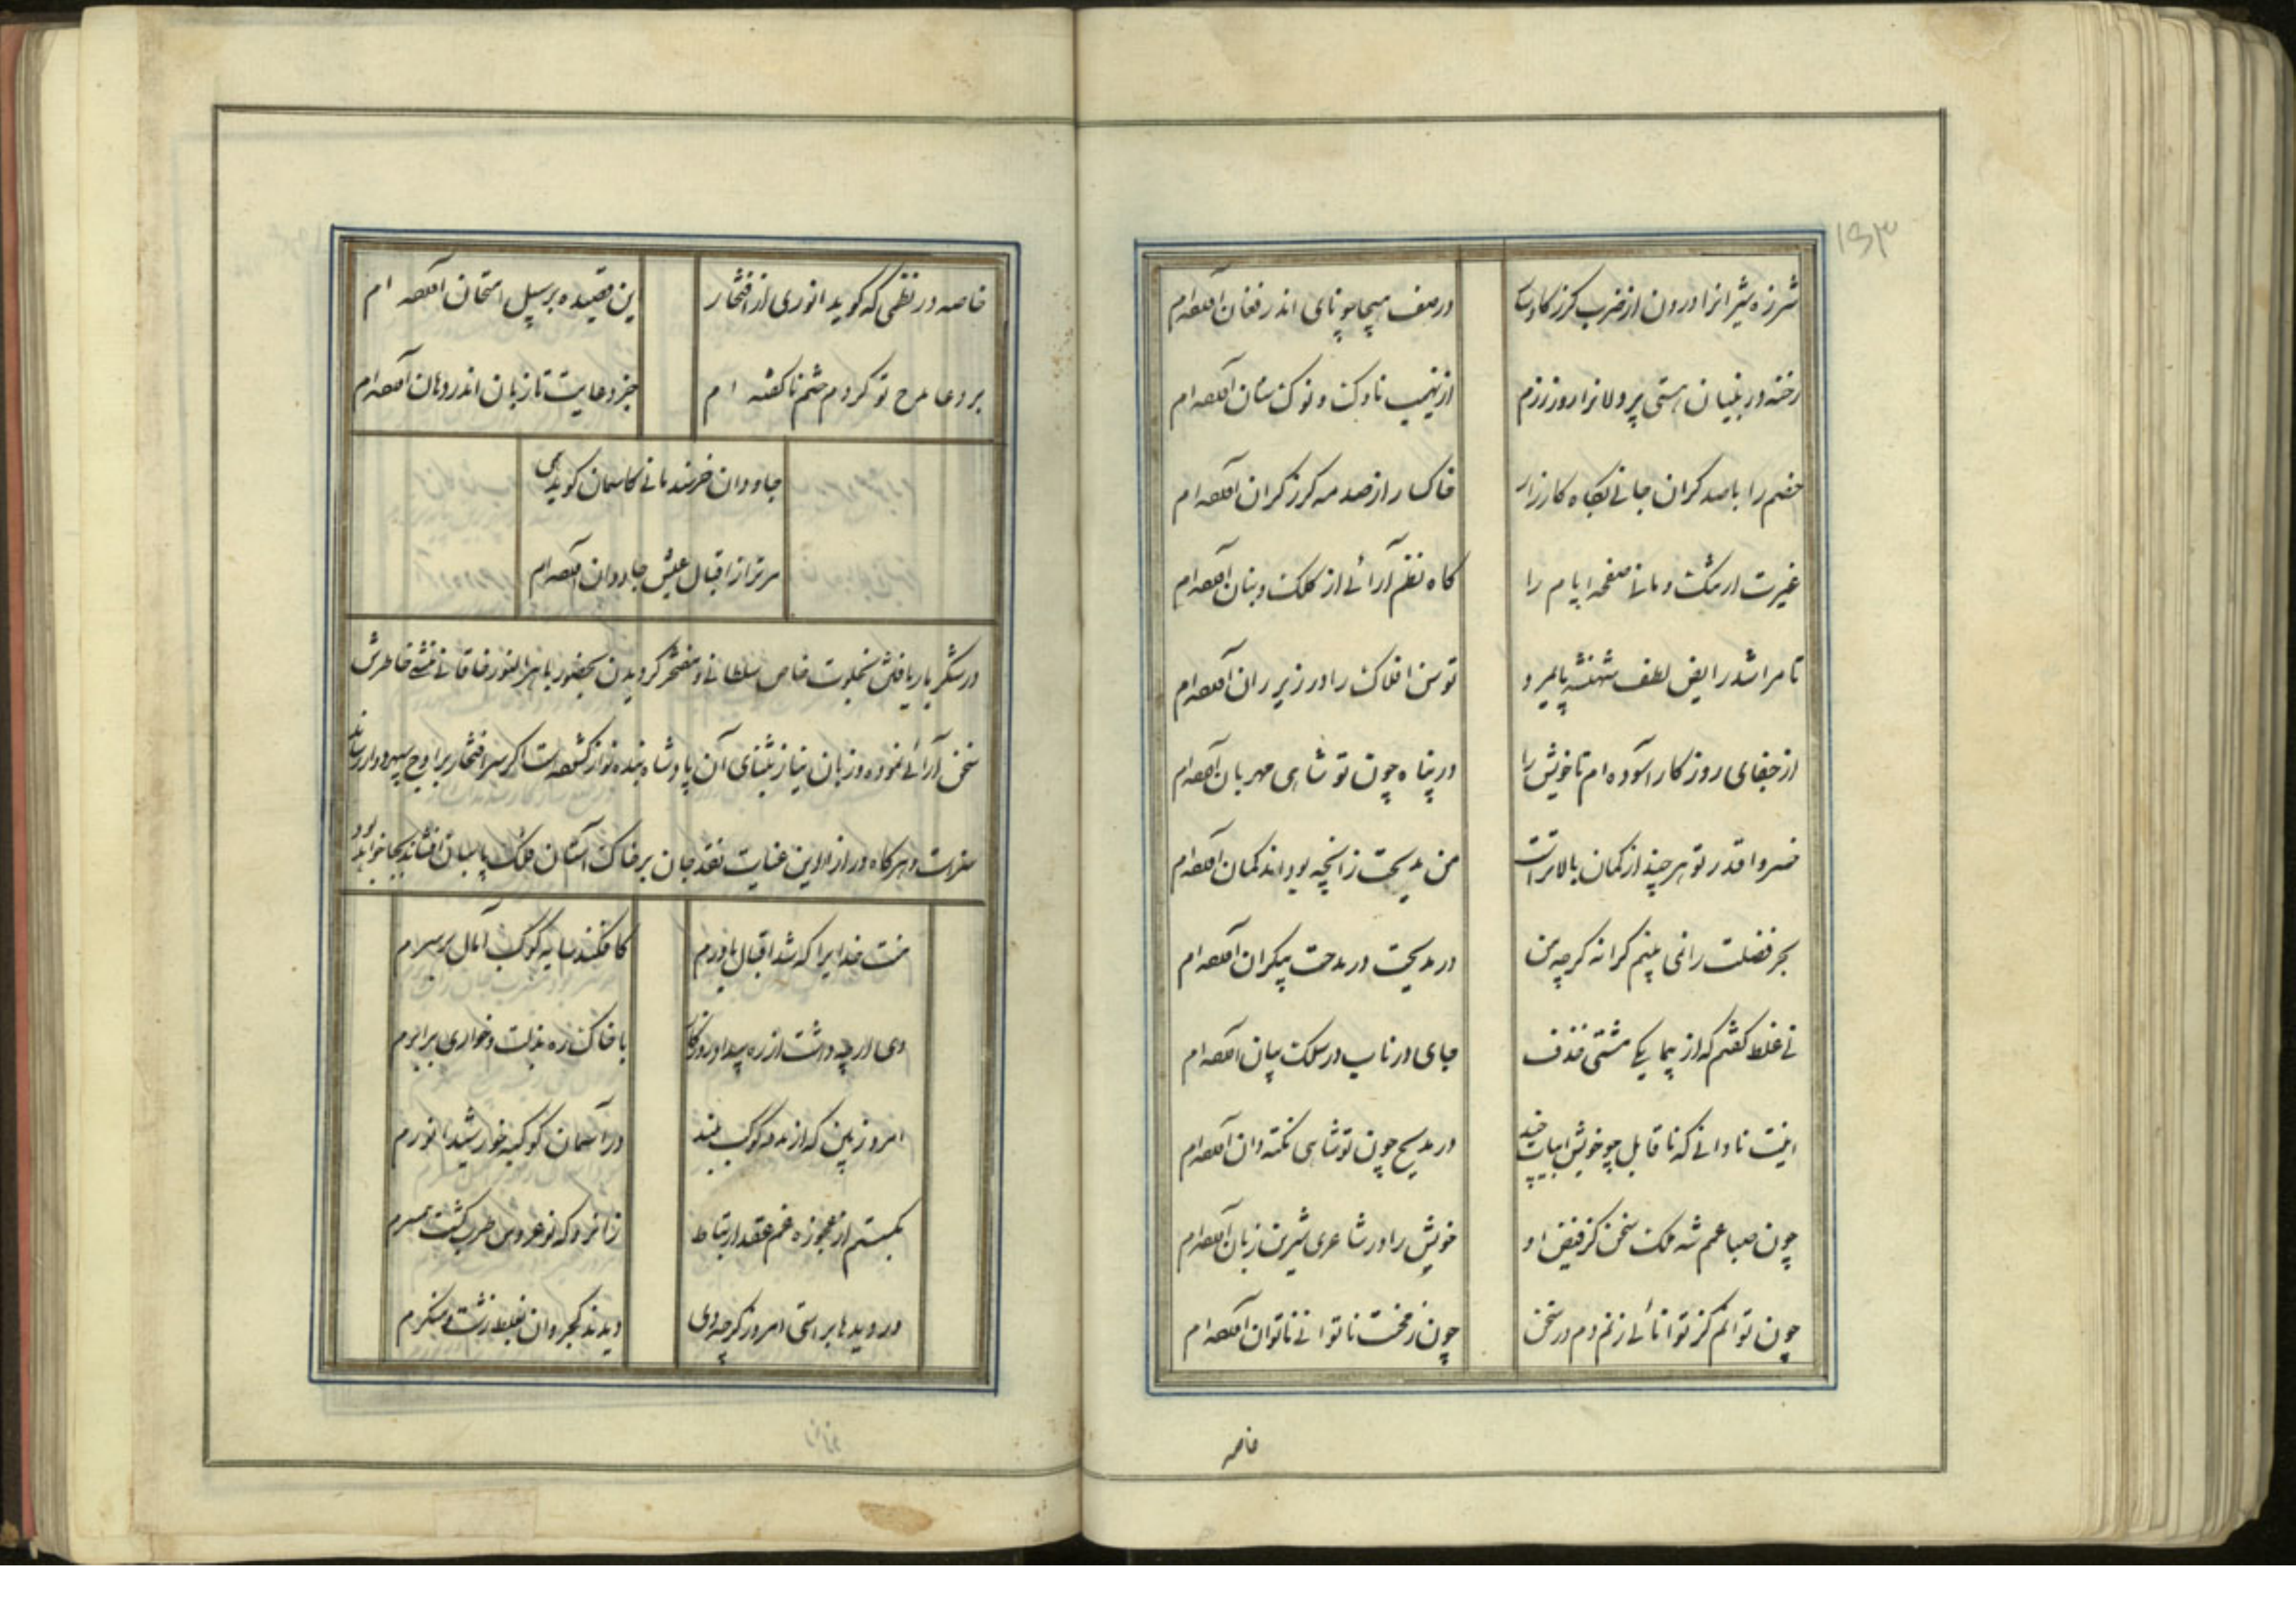 ۱۵۳
شرزه شیرانرا درون از ضرب گرز کاوسا
در صف هیجا چو نای اندر فغان آمده‌ام
رخنه در بنیان هستی پر دلانرا روز رزم
از نهیب ناوک و نوک سنان آمده‌ام
خصم را با صد کران جانی بگاه کارزار
خاکسار از صدمه کرز کران آمده‌ام
غیرت ارتنگ و مانی صفحه ایام را
کاه نظم آرائی از کلک و بنان آمده‌ام
تا مرا شد رایض لطف شهنشه پایمرد
توسن افلاک را در زیر ران آمده‌ام
از جفای روزکار آسوده ام تا خویش را
در پناه چون تو شاهی مهربان آمده‌ام
خسروا قدر تو هر چند از کمان بالاتراست
من مدیحت زانچه بود اندر کمان آمده‌ام
بحر فضلت را نمی بینم کرانه کرچه من
در مدیحت در مدحت بیکران آمده‌ام
نی غلط کفتم که از بیمایکی مشتی خذف
جای در ناب در سلک بیان آمده‌ام
اینت نادانی که ناقابل چو خویش ابیات چند
در مدیح چون تو شاهی نکته دان آمده‌ام
چون صبا عمم شه ملک سخن کز فیض او
خویش را در شاعری شیرین زبان آمده‌ام
چون توانم کز توانائی زنم دم در سخن
چون ز مخت ناتوانی ناتوان آمده‌ام
خاصه
خاصه در نظمی که کوید انوری از افتخار
این قصیده بر سبیل امتحان آمده ام
بر دعا مدح تو کردم ختم ناکفته ام
جز دعایت تا زبان اندر دهان آمده‌ام
جاودان خرسند مانی کاسمان کوید همی
مر ترا ز اقبال عیش جاودان آمده‌ام
در شکر بار یافتن بخلوت خاص سلطانی و مفتخر کردیدن بحضور باهر النور خاقانی منشی خاطرش
سخن آرائی نموده و زبان نیاز بثنای آن پادشاه بنده نواز کشوده است اکر سر افتخار بر اوج سپهر دوار رساند
سزاست و هر کاه در ازای این عنایت نقد جان بر خاک آستان فلک پاسبان افشاند بجا خواهد بود
منت خدایرا که شد اقبال یاورم
کافکند سایه کوکب آمال بر سرم
دی ار چه داشت از ره بیداد روزکار
با خاک ره بذلت و خواری برابرم
امروز بین که از مدد کوکب بلند
در آسمان کوکبه خورشید انورم
بکسستم از عجوزه غم عقد ارتباط
زانرو که نو عروس طرب کشت همسرم
در دیدها براستی امروز کرچه دی
دیدند کجروان بغلط زشت و منکرم